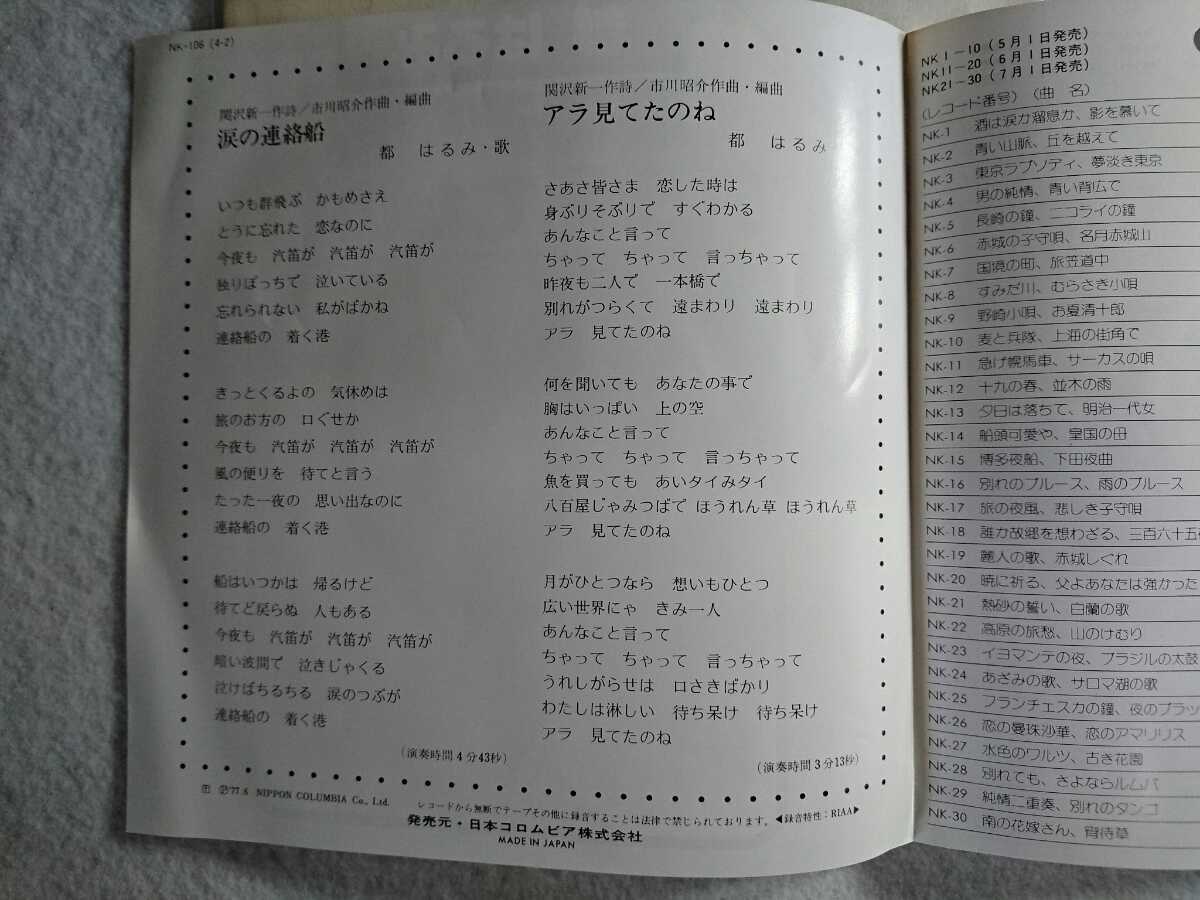 NK-106 (4-2)
関沢新一作詩／市川昭介作曲・編曲
涙の連絡船
都 はるみ・歌
いつも群飛ぶ かもめさえ
とうに忘れた 恋なのに
今夜も 汽笛が 汽笛が 汽笛が
独りぼっちで 泣いている
忘れられない 私がばかね
連絡船の 着く港
きっとくるよの 気休めは
旅のお方の 口ぐせか
今夜も 汽笛が 汽笛が 汽笛が
風の便りを 待てと言う
たった一夜の 思い出なのに
連絡船の 着く港
船はいつかは 帰るけど
待てど戻らぬ 人もある
今夜も 汽笛が 汽笛が 汽笛が
暗い波間で 泣きじゃくる
泣けばちるちる 涙のつぶが
連絡船の 着く港
(演奏時間4分43秒)
関沢新一作詩／市川昭介作曲・編曲
アラ見てたのね
都 はるみ
さあさ皆さま 恋した時は
身ぶりそぶりで すぐわかる
あんなこと言って
ちゃって ちゃって 言っちゃって
昨夜も二人で 一本橋で
別れがつらくて 遠まわり 遠まわり
アラ 見てたのね
何を聞いても あなたの事で
胸はいっぱい 上の空
あんなこと言って
ちゃって ちゃって 言っちゃって
魚を買っても あいタイみタイ
八百屋じゃみつばで ほうれん草 ほうれん草
アラ 見てたのね
月がひとつなら 想いもひとつ
広い世界にゃ きみ一人
あんなこと言って
ちゃって ちゃって 言っちゃって
うれしがらせは 口さきばかり
わたしは淋しい 待ち呆け 待ち呆け
アラ 見てたのね
(演奏時間3分13秒)
Ⓟ'77.6 NIPPON COLUMBIA Co., Ltd.
レコードから無断でテープその他に録音することは法律で禁じられております。◀録音特性：RIAA▶
発売元・日本コロムビア株式会社
MADE IN JAPAN
NK1－10（5月1日発売）
NK11－20（6月1日発売）
NK21－30（7月1日発売）
(レコード番号) (曲 名)
NK-1 酒は涙か溜息か、影を慕いて
NK-2 青い山脈、丘を越えて
NK-3 東京ラプソディ、夢淡き東京
NK-4 男の純情、青い背広で
NK-5 長崎の鐘、ニコライの鐘
NK-6 赤城の子守唄、名月赤城山
NK-7 国境の町、旅笠道中
NK-8 すみだ川、むらさき小唄
NK-9 野崎小唄、お夏清十郎
NK-10 麦と兵隊、上海の街角で
NK-11 急げ幌馬車、サーカスの唄
NK-12 十九の春、並木の雨
NK-13 夕日は落ちて、明治一代女
NK-14 船頭可愛や、皇国の母
NK-15 博多夜船、下田夜曲
NK-16 別れのブルース、雨のブルース
NK-17 旅の夜風、悲しき子守唄
NK-18 誰か故郷を想わざる、三百六十五
NK-19 麗人の歌、赤城しぐれ
NK-20 暁に祈る、父よあなたは強かった
NK-21 熱砂の誓い、白蘭の歌
NK-22 高原の旅愁、山のけむり
NK-23 イヨマンテの夜、ブラジルの太鼓
NK-24 あざみの歌、サロマ湖の歌
NK-25 フランチェスカの鐘、夜のプラッ
NK-26 恋の曼珠沙華、恋のアマリリス
NK-27 水色のワルツ、古き花園
NK-28 別れても、さよならルムバ
NK-29 純情二重奏、別れのタンゴ
NK-30 南の花嫁さん、宵待草